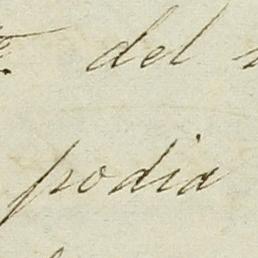 del
podia